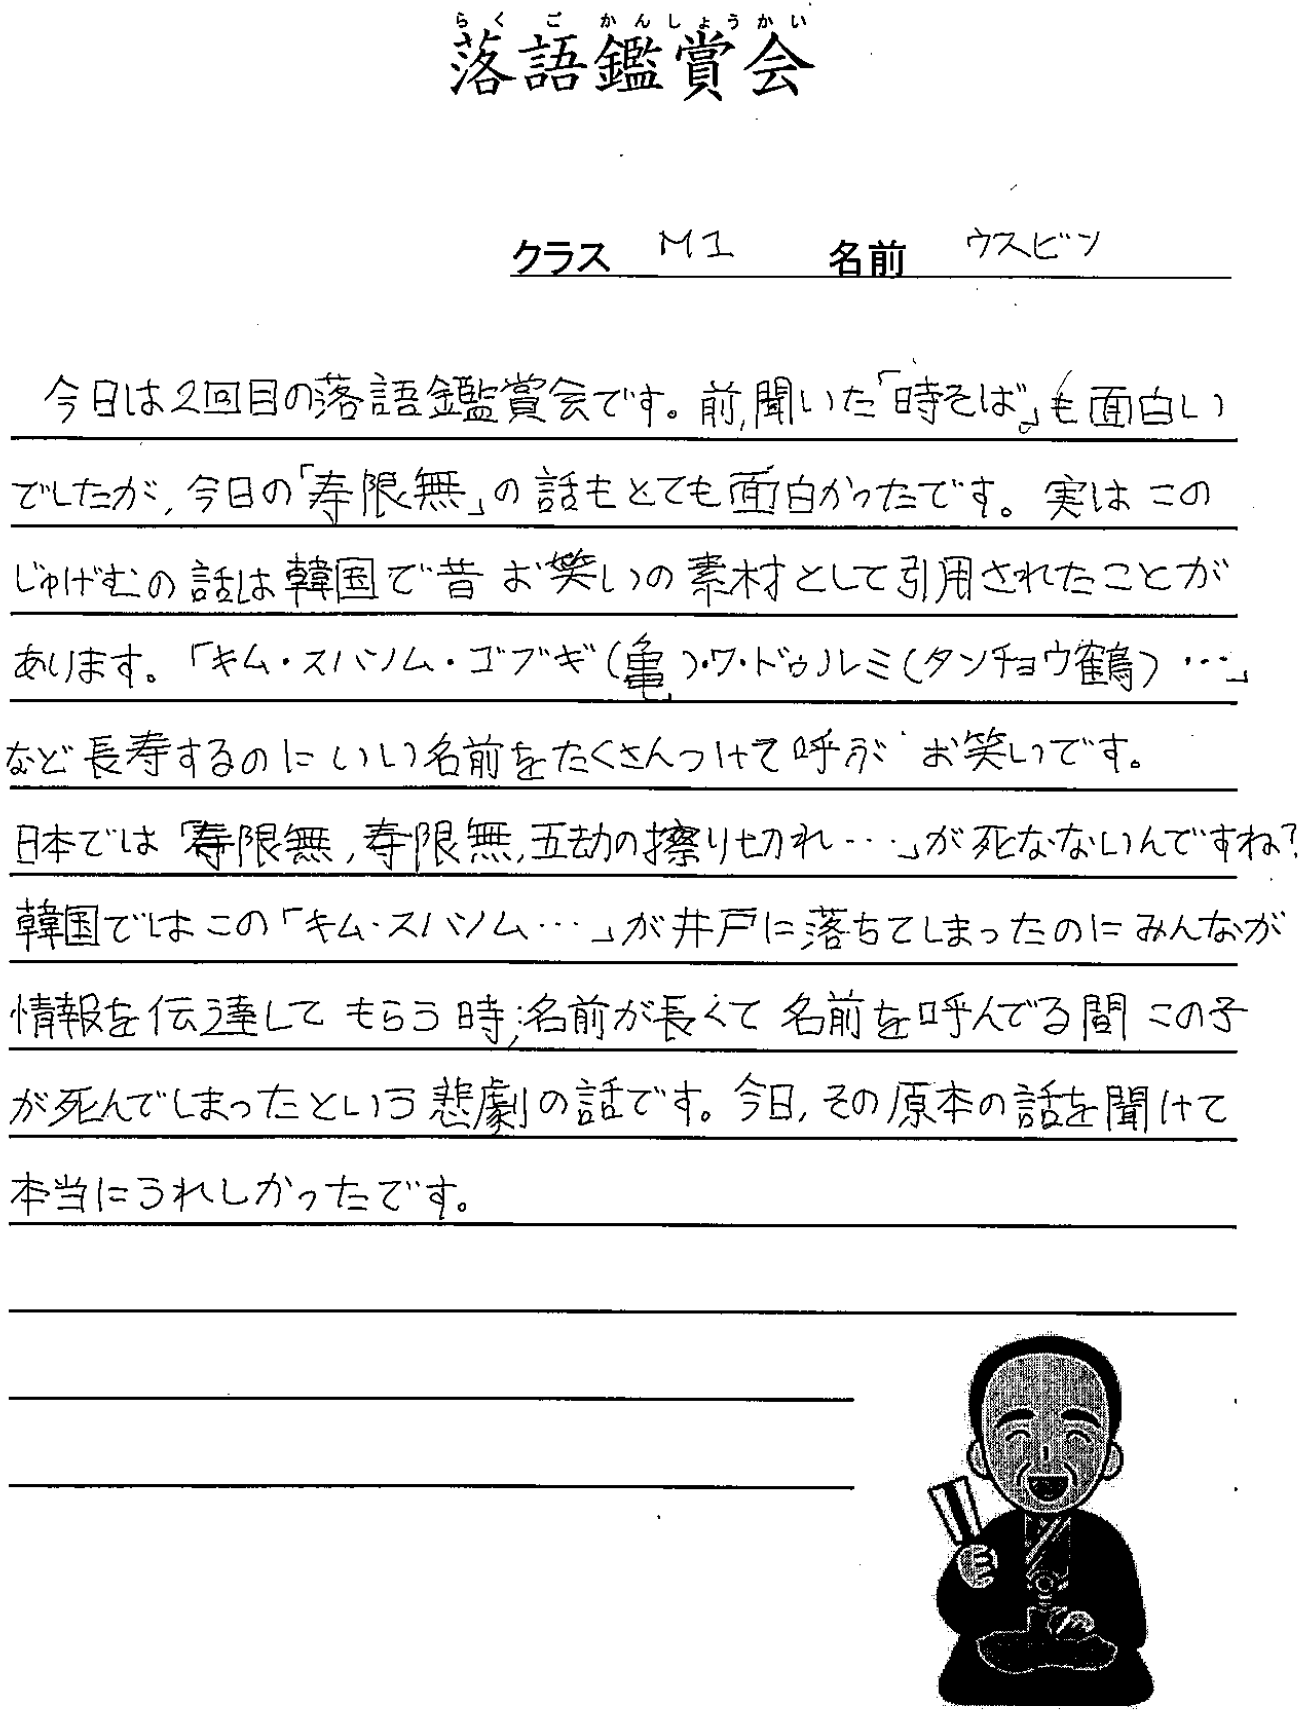 らくごかんしょうかい
落語鑑賞会
クラス M1 名前 ウスビン
今日は2回目の落語鑑賞会です。前,聞いた「時そば」も面白い
でしたが,今日の「寿限無」の話もとても面白かったです。実はこの
じゅげむの話は韓国で昔お笑いの素材として引用されたことが
あります。「キム・スハンム・ゴブギ(亀)・ワ・ドゥルミ(タンチョウ鶴)…」
など長寿するのにいい名前をたくさんつけて呼ぶお笑いです。
日本では「寿限無,寿限無,五劫の擦り切れ…」が死なないんですね?
韓国ではこの「キム・スハンム…」が井戸に落ちてしまったのにみんなが
情報を伝達してもらう時,名前が長くて名前を呼んでる間この子
が死んでしまったという悲劇の話です。今日,その原本の話を聞けて
本当にうれしかったです。